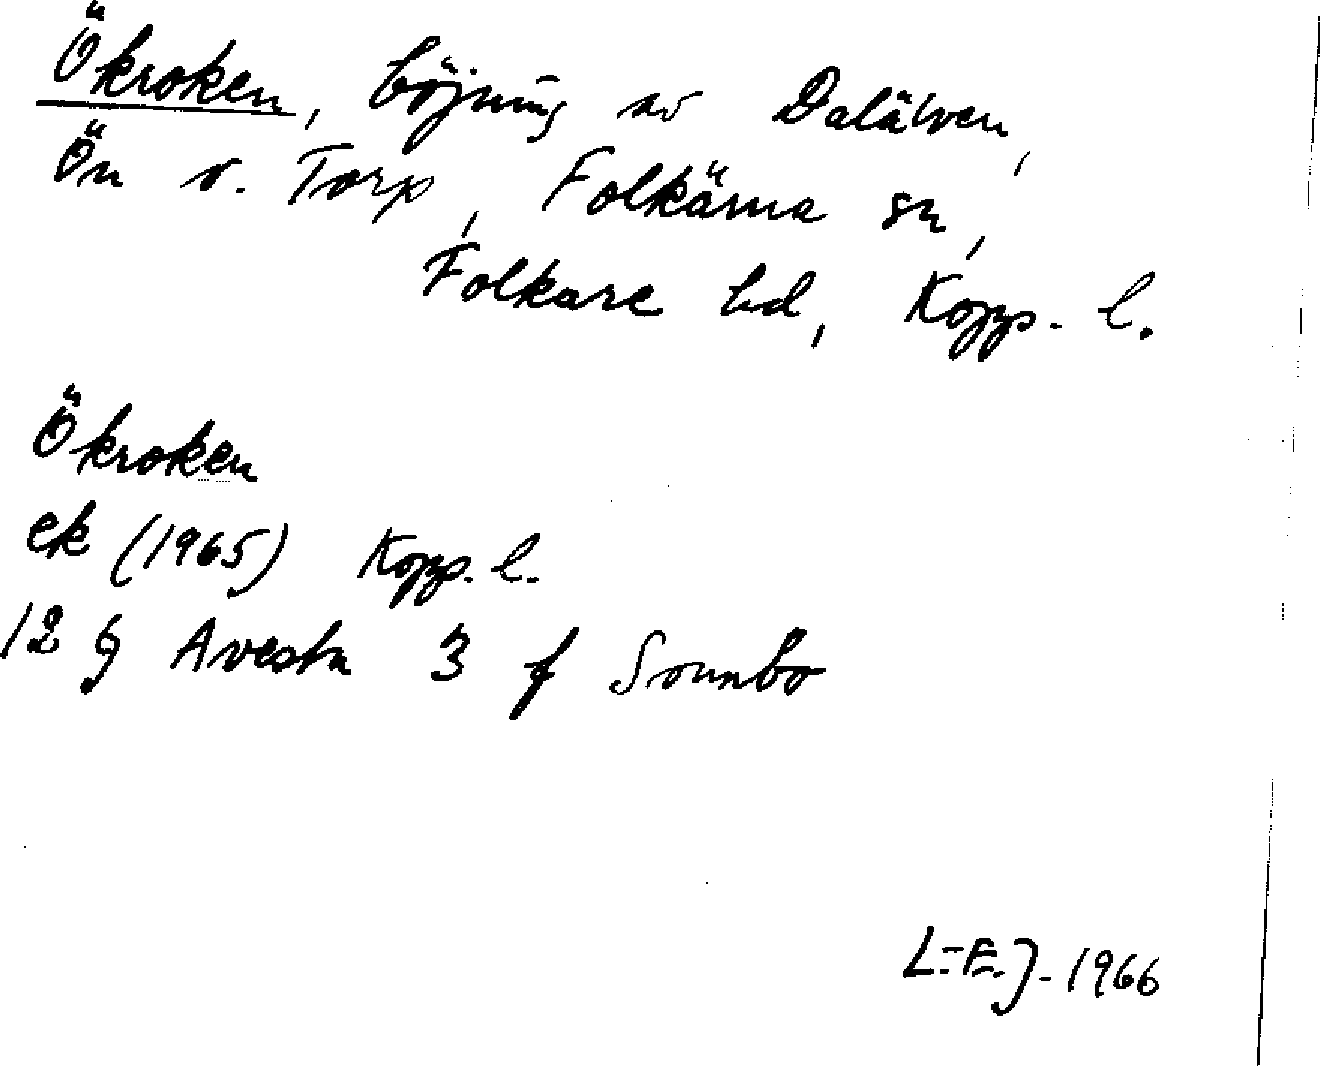 Ökroken, böjning av Dalälven,
Ön o. Torp, Folkärna sn,
Folkare hd, Kopp. l.
Ökroken
ek (1965) Kopp. l.
12 G Avesta 3 f Sonnbo
L.-E. J. 1966